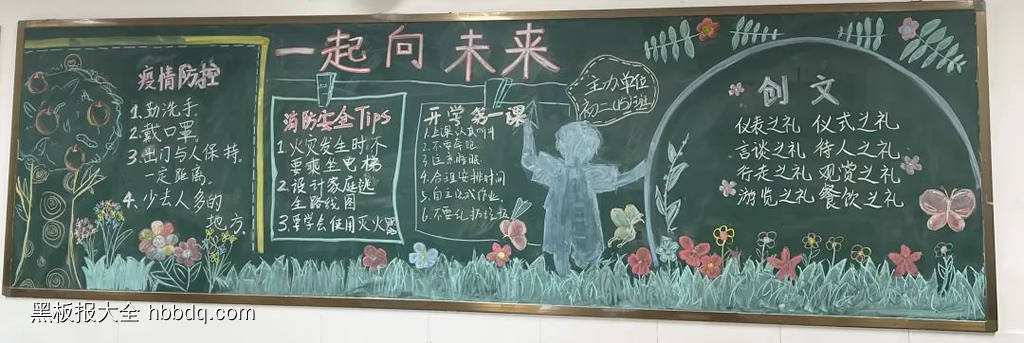 一起向未来
疫情防控
1.勤洗手
2.戴口罩
3.出门与人保持
一定距离.
4.少去人多的
地方.
消防安全Tips
1.火灾发生时,不
要乘坐电梯
2.设计家庭逃
生路线图
3.要学会使用灭火器
开学第一课
1.上课认真听讲
4.合理安排时间
5.自主完成作业
主办单位
初一(15)班
创文
仪表之礼 仪式之礼
言谈之礼 待人之礼
行走之礼 观赏之礼
游览之礼 餐饮之礼
黑板报大全 hbbdq.com